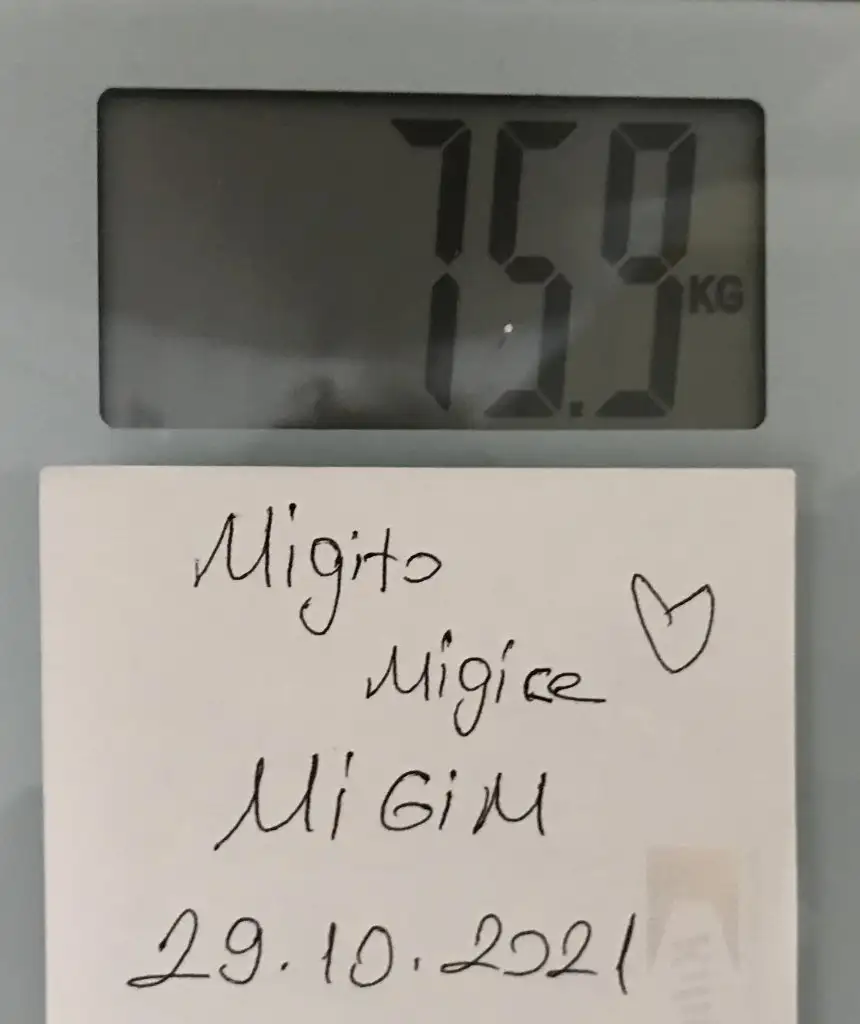 75.9 KG
Migito
Migice
MiGiM
29.10.2021